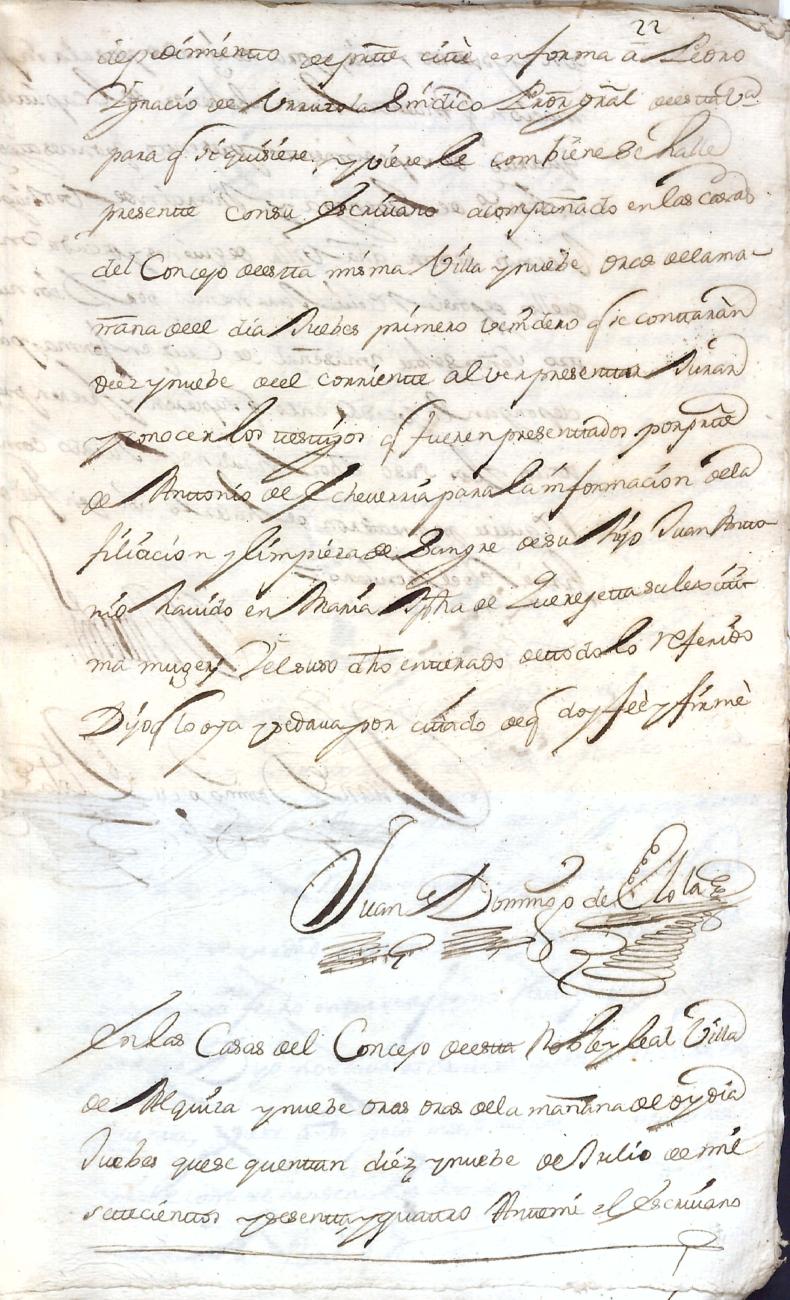 22
de pedimiento de prte cité en forma a Pedro
Ygnacio de Urruzola Sindico Pror gral de esta Va
para q si quisiere, y viere le combiene se halle
presente con su escrivano acompañado en las casas
del Concejo de esta misma Villa y nuebe oras de la ma-
ñana de el dia Juebes primero venidero q se contaràn
diez y nuebe de el corriente al ver presentar Jurar
y conocer los testigos q fueren presentados por prte
de Anttonio de Echeverria para la informacion de la
filiacion y limpieza de Sangre de su Hijo Juan Antto-
nio havido en Maria Jpha de Querejetta su lexiti-
ma muger, y el suso dho enterado de todo lo referido
Dijo q lo oya y se dava por citado de q doy feè y firmè
Juan Domingo de Olola
En las Casas del Concejo de esta Noble y leal Villa
de Alquiza y nuebe oras oras de la mañana de oy dia
Juebes que se quentan diéz y nuebe de Julio de mil
settecienttos y sesenta y quattro Antemi el Escrivano